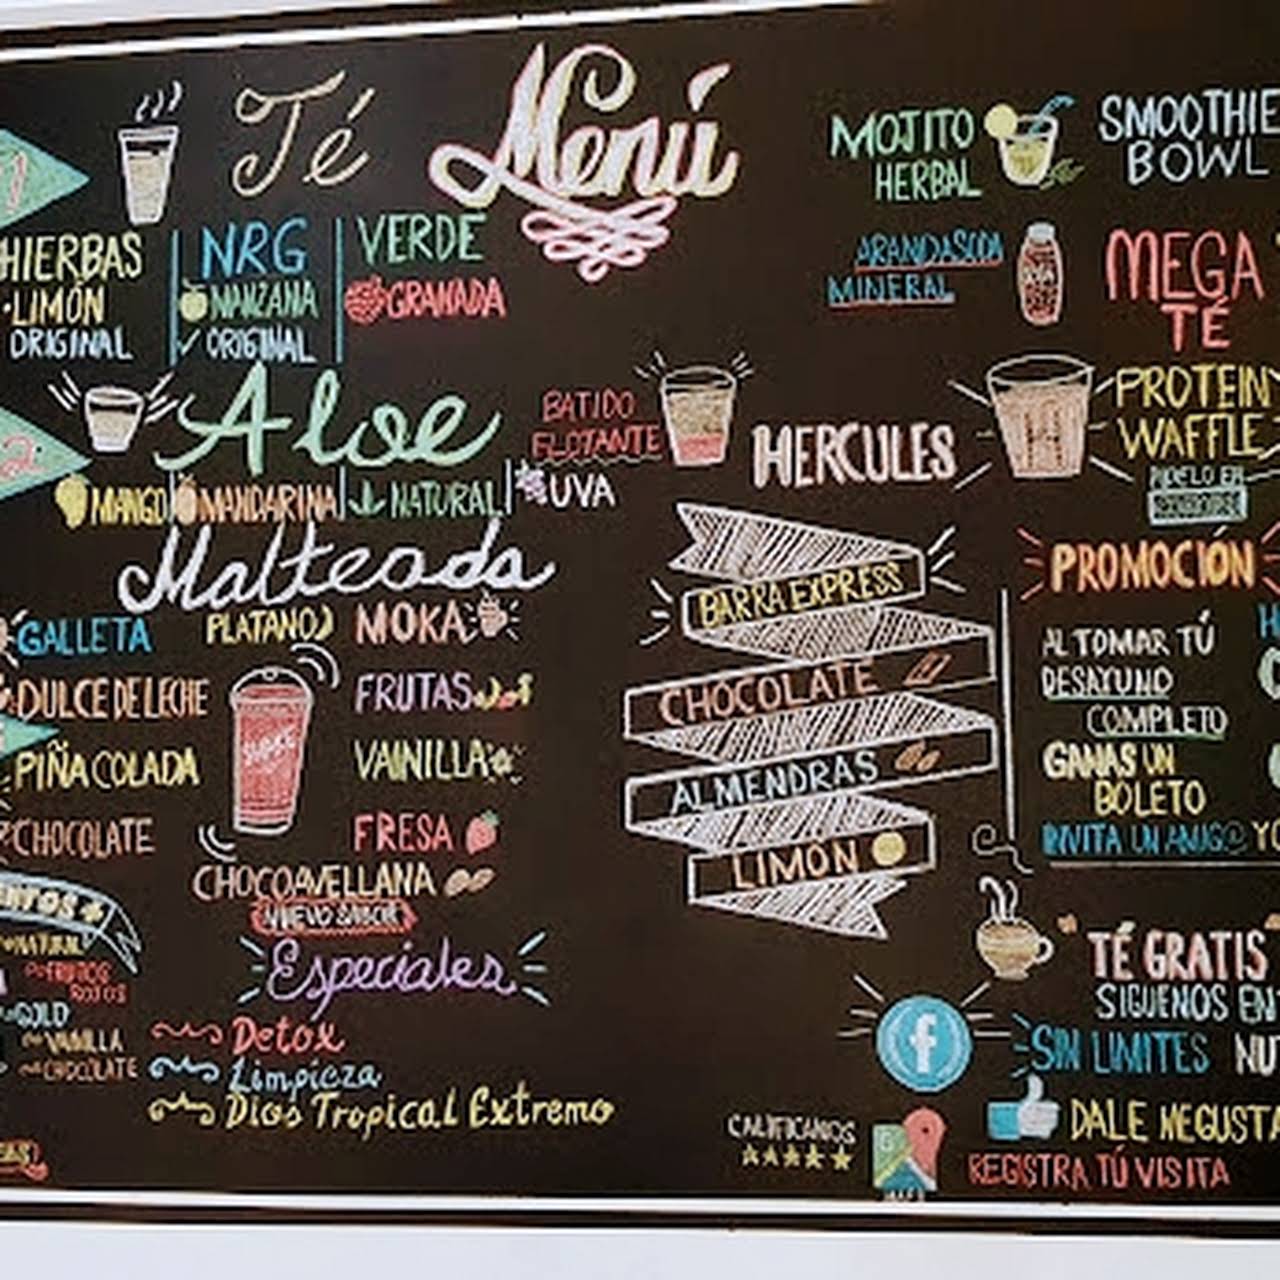 Menú
1
Té
HIERBAS
LIMÓN
ORIGINAL
NRG
MANZANA
ORIGINAL
VERDE
GRANADA
2
Aloe
MANGO
MANDARINA
NATURAL
UVA
Malteada
GALLETA
DULCE DE LECHE
PIÑA COLADA
CHOCOLATE
PLATANO
MOKA
FRUTAS
VAINILLA
FRESA
CHOCOAVELLANA
NUEVO SABOR
NATURAL
FRUTOS
ROJOS
GOLD
VAINILLA
CHOCOLATE
Especiales
Detox
Limpieza
Dios Tropical Extremo
BATIDO
FLOTANTE
HERCULES
BARRA EXPRESS
CHOCOLATE
ALMENDRAS
LIMÓN
MOJITO
HERBAL
MINERAL
SMOOTHIE
BOWL
MEGA
TÉ
PROTEIN
WAFFLE
PROMOCIÓN
AL TOMAR TÚ
DESAYUNO
COMPLETO
GANAS UN
BOLETO
INVITA UN AMIGO
TÉ GRATIS
SIGUENOS EN
f
SIN LIMITES NU
DALE MEGUSTA
CALIFICANOS
REGISTRA TÚ VISITA